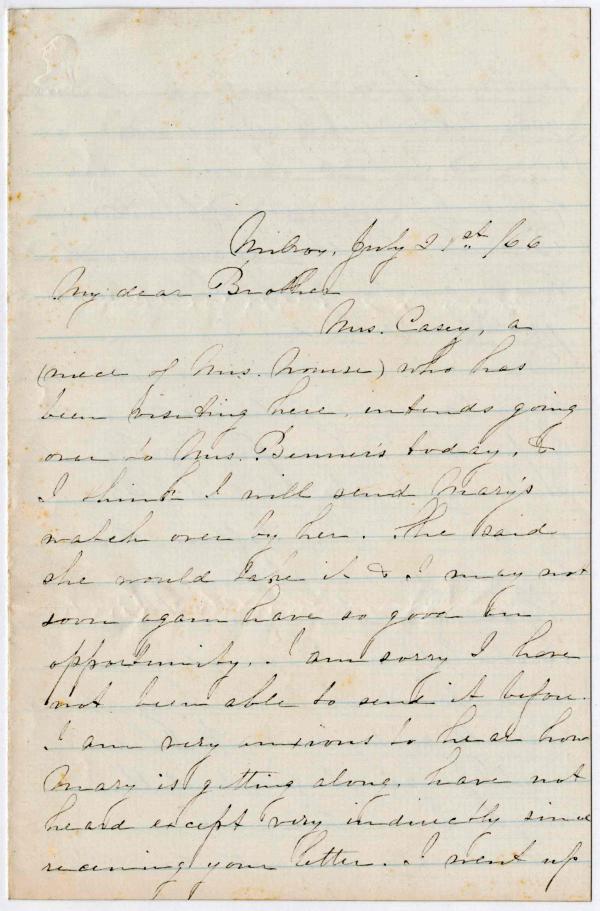 Milroy, July 21st /66
My dear Brother
Mrs. Casey, a
(niece of Mrs. Nourse) who has
been visiting here, intends going
over to Mrs. Benner's today, &
I think I will send Mary's
watch over by her. She said
she would take it & I may not
soon again have so good an
opportunity. I am sorry I have
not been able to send it before.
I am very anxious to hear how
Mary is getting along, have not
heard except very indirectly since
receiving your letter. I went up